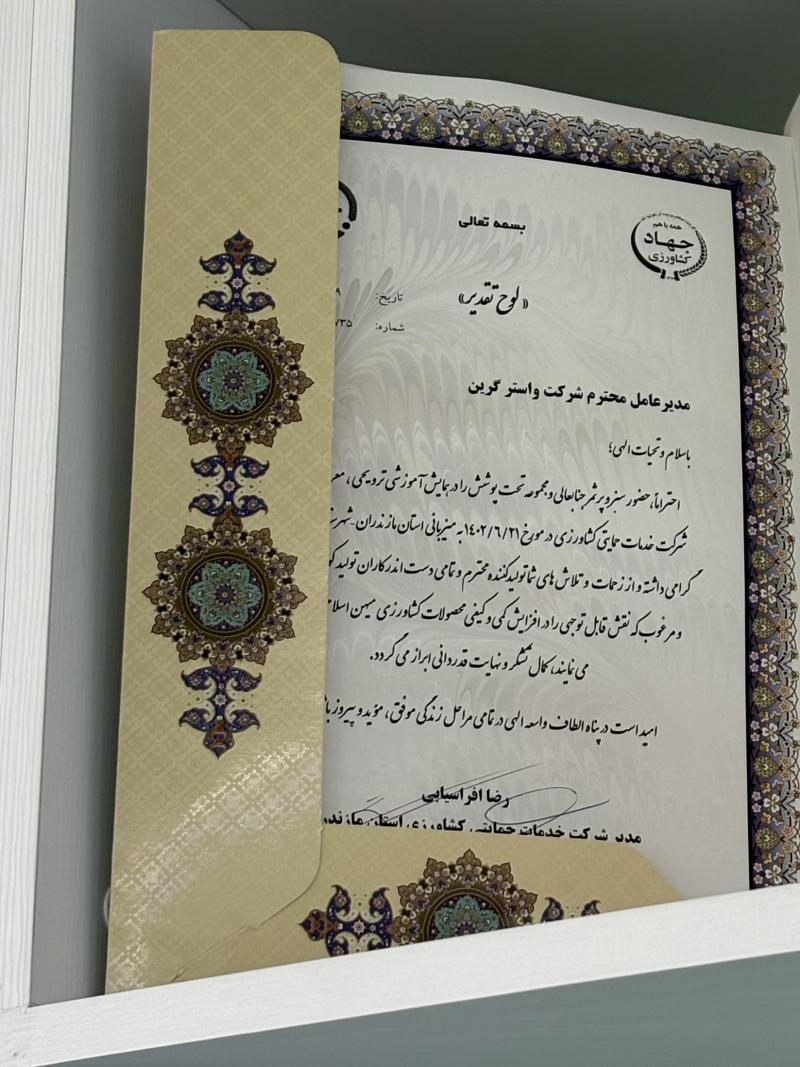 بسمه تعالی
همه با هم
جهاد
کشاورزی
«لوح تقدیر»
تاریخ:
شماره:
۷۳۵
مدیرعامل محترم شرکت واستر گرین
باسلام و تحیات الهی؛
احتراماً، حضور سبز و پرثمر جنابعالی و مجموعه تحت پوشش را در همایش آموزشی ترویجی،
شرکت خدمات حمایتی کشاورزی در مورخ ۱۴۰۲/۶/۲۱ به میزبانی استان مازندران-
گرامی داشته و از زحمات و تلاش های شما تولیدکننده محترم و تمامی دست اندرکاران تولید
و مرغوب که نقش قابل توجهی را در افزایش کمی و کیفی محصولات کشاورزی میهن
می نمایند، کمال تشکر و نهایت قدردانی ابراز می گردد.
امید است در پناه الطاف واسعه الهی در تمامی مراحل زندگی موفق، مؤید و پیروز
رضا افراسیابی
مدیر شرکت خدمات حمایتی کشاورزی استان